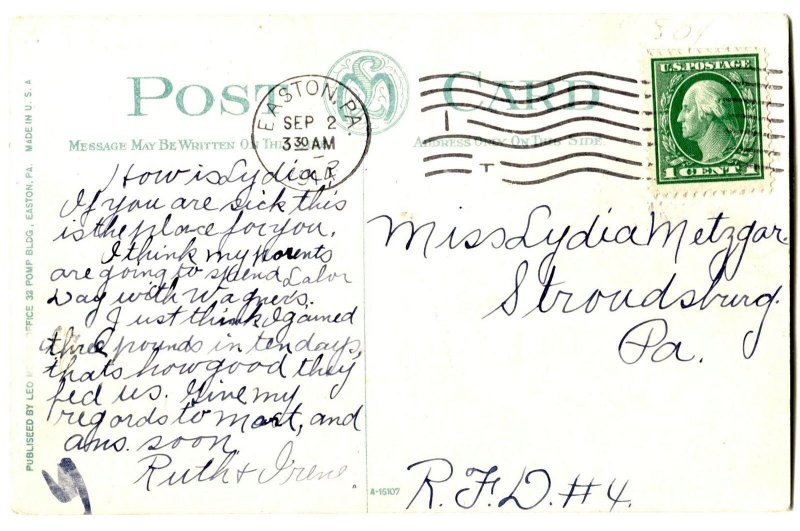 POST CARD
MESSAGE MAY BE WRITTEN ON THIS
ADDRESS ONLY ON THIS SIDE.
EASTON, PA.
SEP 2
3 30 AM
U.S. POSTAGE
1 CENT 1
How is Lydia?
If you are sick this
is the place for you.
I think my parents
are going to spend Labor
Day with Wagner's.
Just think I gained
three pounds in ten days,
thats how good they
fed us. Give my
regards to Mart, and
ans. soon
Ruth & Irene
Miss Lydia Metzgar.
Stroudsburg.
Pa.
R.F.D. #4.
A-16107
PUBLISEED BY LEO OFFICE 32 POMP BLDG., EASTON, PA. MADE IN U.S.A